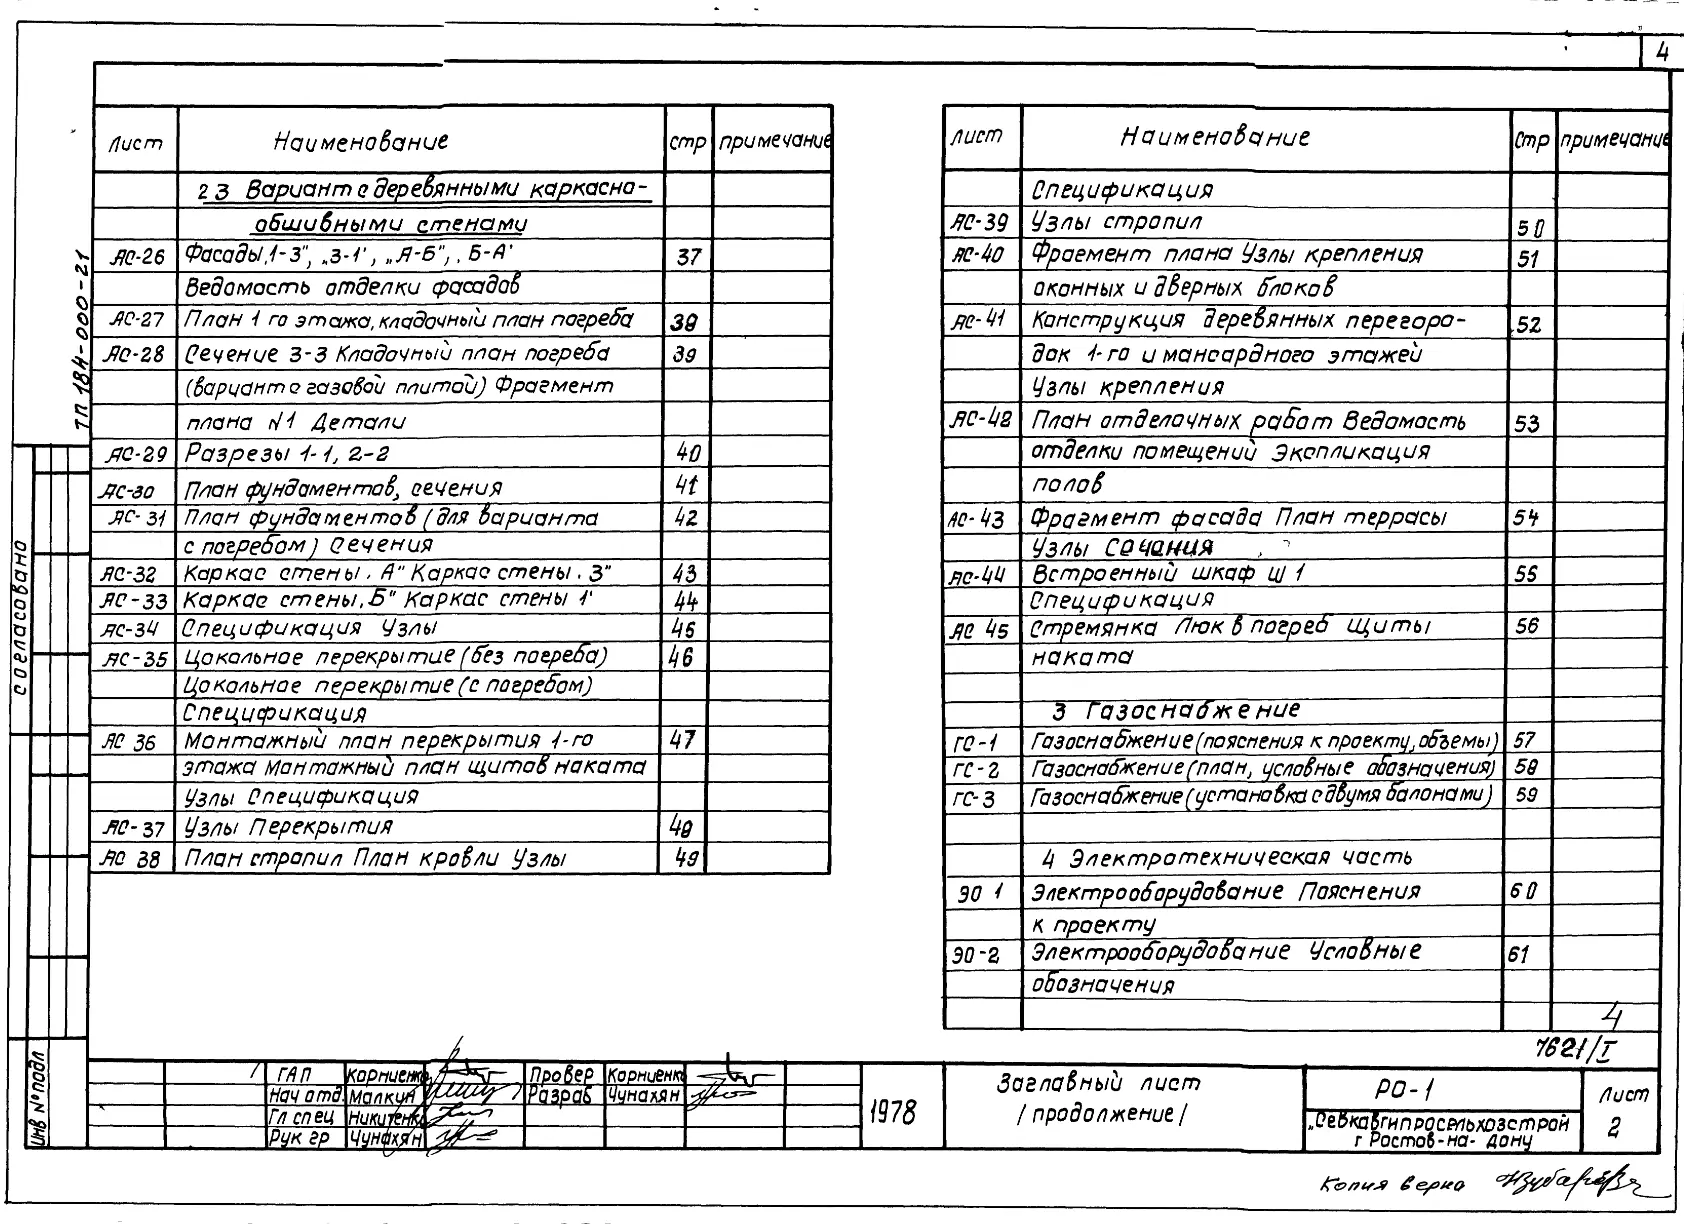 4
Лист Наименование стр примечание
2 3 Вариант с деревянными каркасно-
обшивными стенами
АС-26 Фасады „1-3", „3-1", „А-Б", „Б-А" 37
Ведомость отделки фасадов
АС-27 План 1 го этажа, кладочный план погреба 38
АС-28 Сечение 3-3 Кладочный план погреба 39
(вариант с газовой плитой) Фрагмент
плана N1 Детали
АС-29 Разрезы 1-1, 2-2 40
АС-30 План фундаментов, сечения 41
АС-31 План фундаментов (для варианта 42
с погребом) Сечения
АС-32 Каркас стены „А" Каркас стены „3" 43
АС-33 Каркас стены „Б" Каркас стены 1" 44
АС-34 Спецификация Узлы 45
АС-35 Цокольное перекрытие (без погреба) 46
Цокольное перекрытие (с погребом)
Спецификация
АС 36 Монтажный план перекрытия 1-го 47
этажа Монтажный план щитов наката
Узлы Спецификация
АС-37 Узлы Перекрытия 48
АС 38 План стропил План кровли Узлы 49
Лист Наименование Стр примечание
Спецификация
АС-39 Узлы стропил 50
АС-40 Фрагмент плана Узлы крепления 51
оконных и дверных блоков
АС-41 Конструкция деревянных перегоро- 52
док 1-го и мансардного этажей
Узлы крепления
АС-42 План отделочных работ Ведомость 53
отделки помещений Экспликация
полов
АС-43 Фрагмент фасада План террасы 54
Узлы Сечения
АС-44 Встроенный шкаф Ш 1 55
Спецификация
АС 45 Стремянка Люк в погреб Щиты 56
наката
3 Газоснабжение
ГС-1 Газоснабжение (пояснения к проекту, объемы) 57
ГС-2 Газоснабжение (план, условные обозначения) 58
ГС-3 Газоснабжение (установка с двумя балонами) 59
4 Электротехническая часть
ЭО 1 Электрооборудование Пояснения 60
к проекту
ЭО-2 Электрооборудование Условные 61
обозначения
4
7621/I
ТП 184-000-21
согласовано
Инв № подл
ГАП Корниенко Провер Корниенко
Нач отд. Малкин Разраб Чунахян
Гл спец Никитенко
Рук гр Чунахян
1978
Заглавный лист
/ продолжение /
РО-1
„Севкавгипросельхозстрой
г Ростов-на-Дону
Лист
2
Копия верна